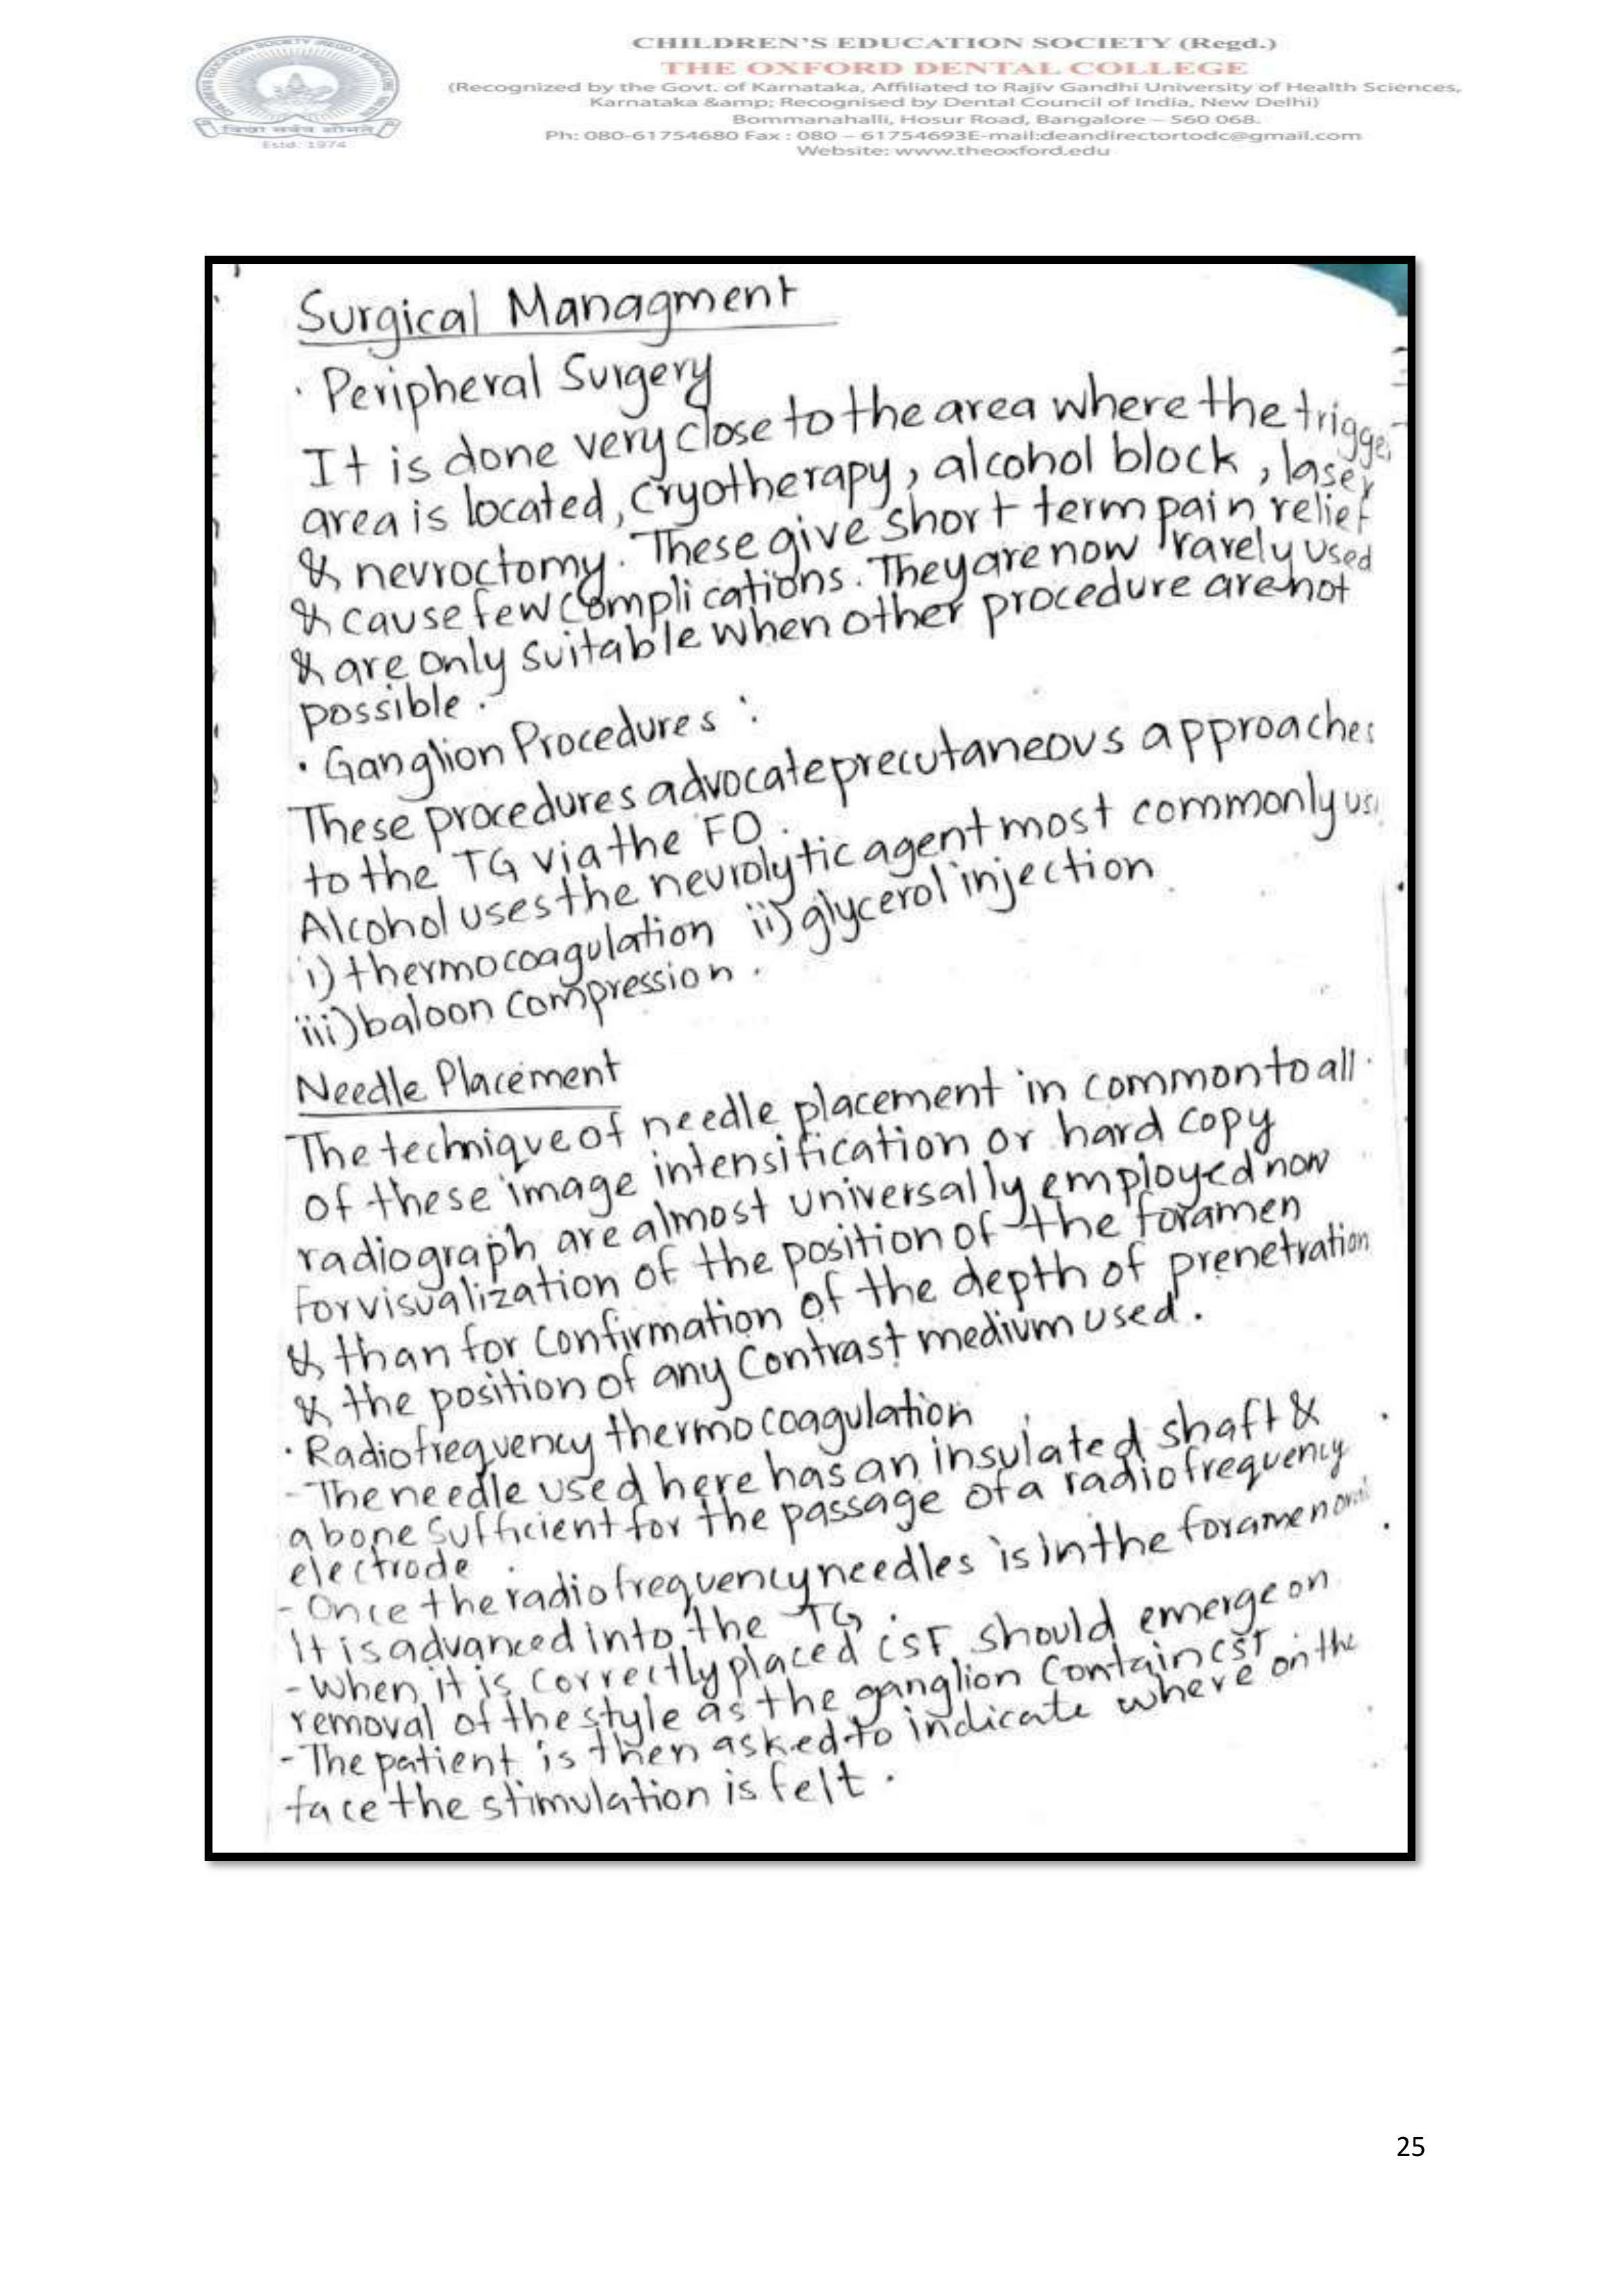 CHILDREN'S EDUCATION SOCIETY (Regd.)
THE OXFORD DENTAL COLLEGE
(Recognized by the Govt. of Karnataka, Affiliated to Rajiv Gandhi University of Health Sciences,
Karnataka &amp; Recognised by Dental Council of India, New Delhi)
Bommanahalli, Hosur Road, Bangalore – 560 068.
Ph: 080-61754680 Fax : 080 – 61754693E-mail:deandirectortodc@gmail.com
Website: www.theoxford.edu
Estd. 1974
Surgical Managment
· Peripheral Surgery
It is done very close to the area where the trigger
area is located, cryotherapy, alcohol block, laser
& nevroctomy. These give short term pain relief
& cause few complications. They are now rarely used
& are only suitable when other procedure are not
possible.
· Ganglion Procedures :
These procedures advocate precutaneous approaches
to the TG via the FO.
Alcohol uses the neurolytic agent most commonly us
i) thermocoagulation ii) glycerol injection
iii) baloon compression.
Needle Placement
The technique of needle placement in common to all
of these image intensification or hard copy
radiograph are almost universally employed now
for visualization of the position of the foramen
& than for confirmation of the depth of prenetration
& the position of any contrast medium used.
· Radiofrequency thermocoagulation
- The needle used here has an insulated shaft &
a bone sufficient for the passage of a radiofrequency
electrode.
- Once the radiofrequency needles is in the foramen
It is advanced into the TG.
- When it is correctly placed CSF should emerge on
removal of the style as the ganglion contain CSF.
- The patient is then asked to indicate where on the
face the stimulation is felt.
25